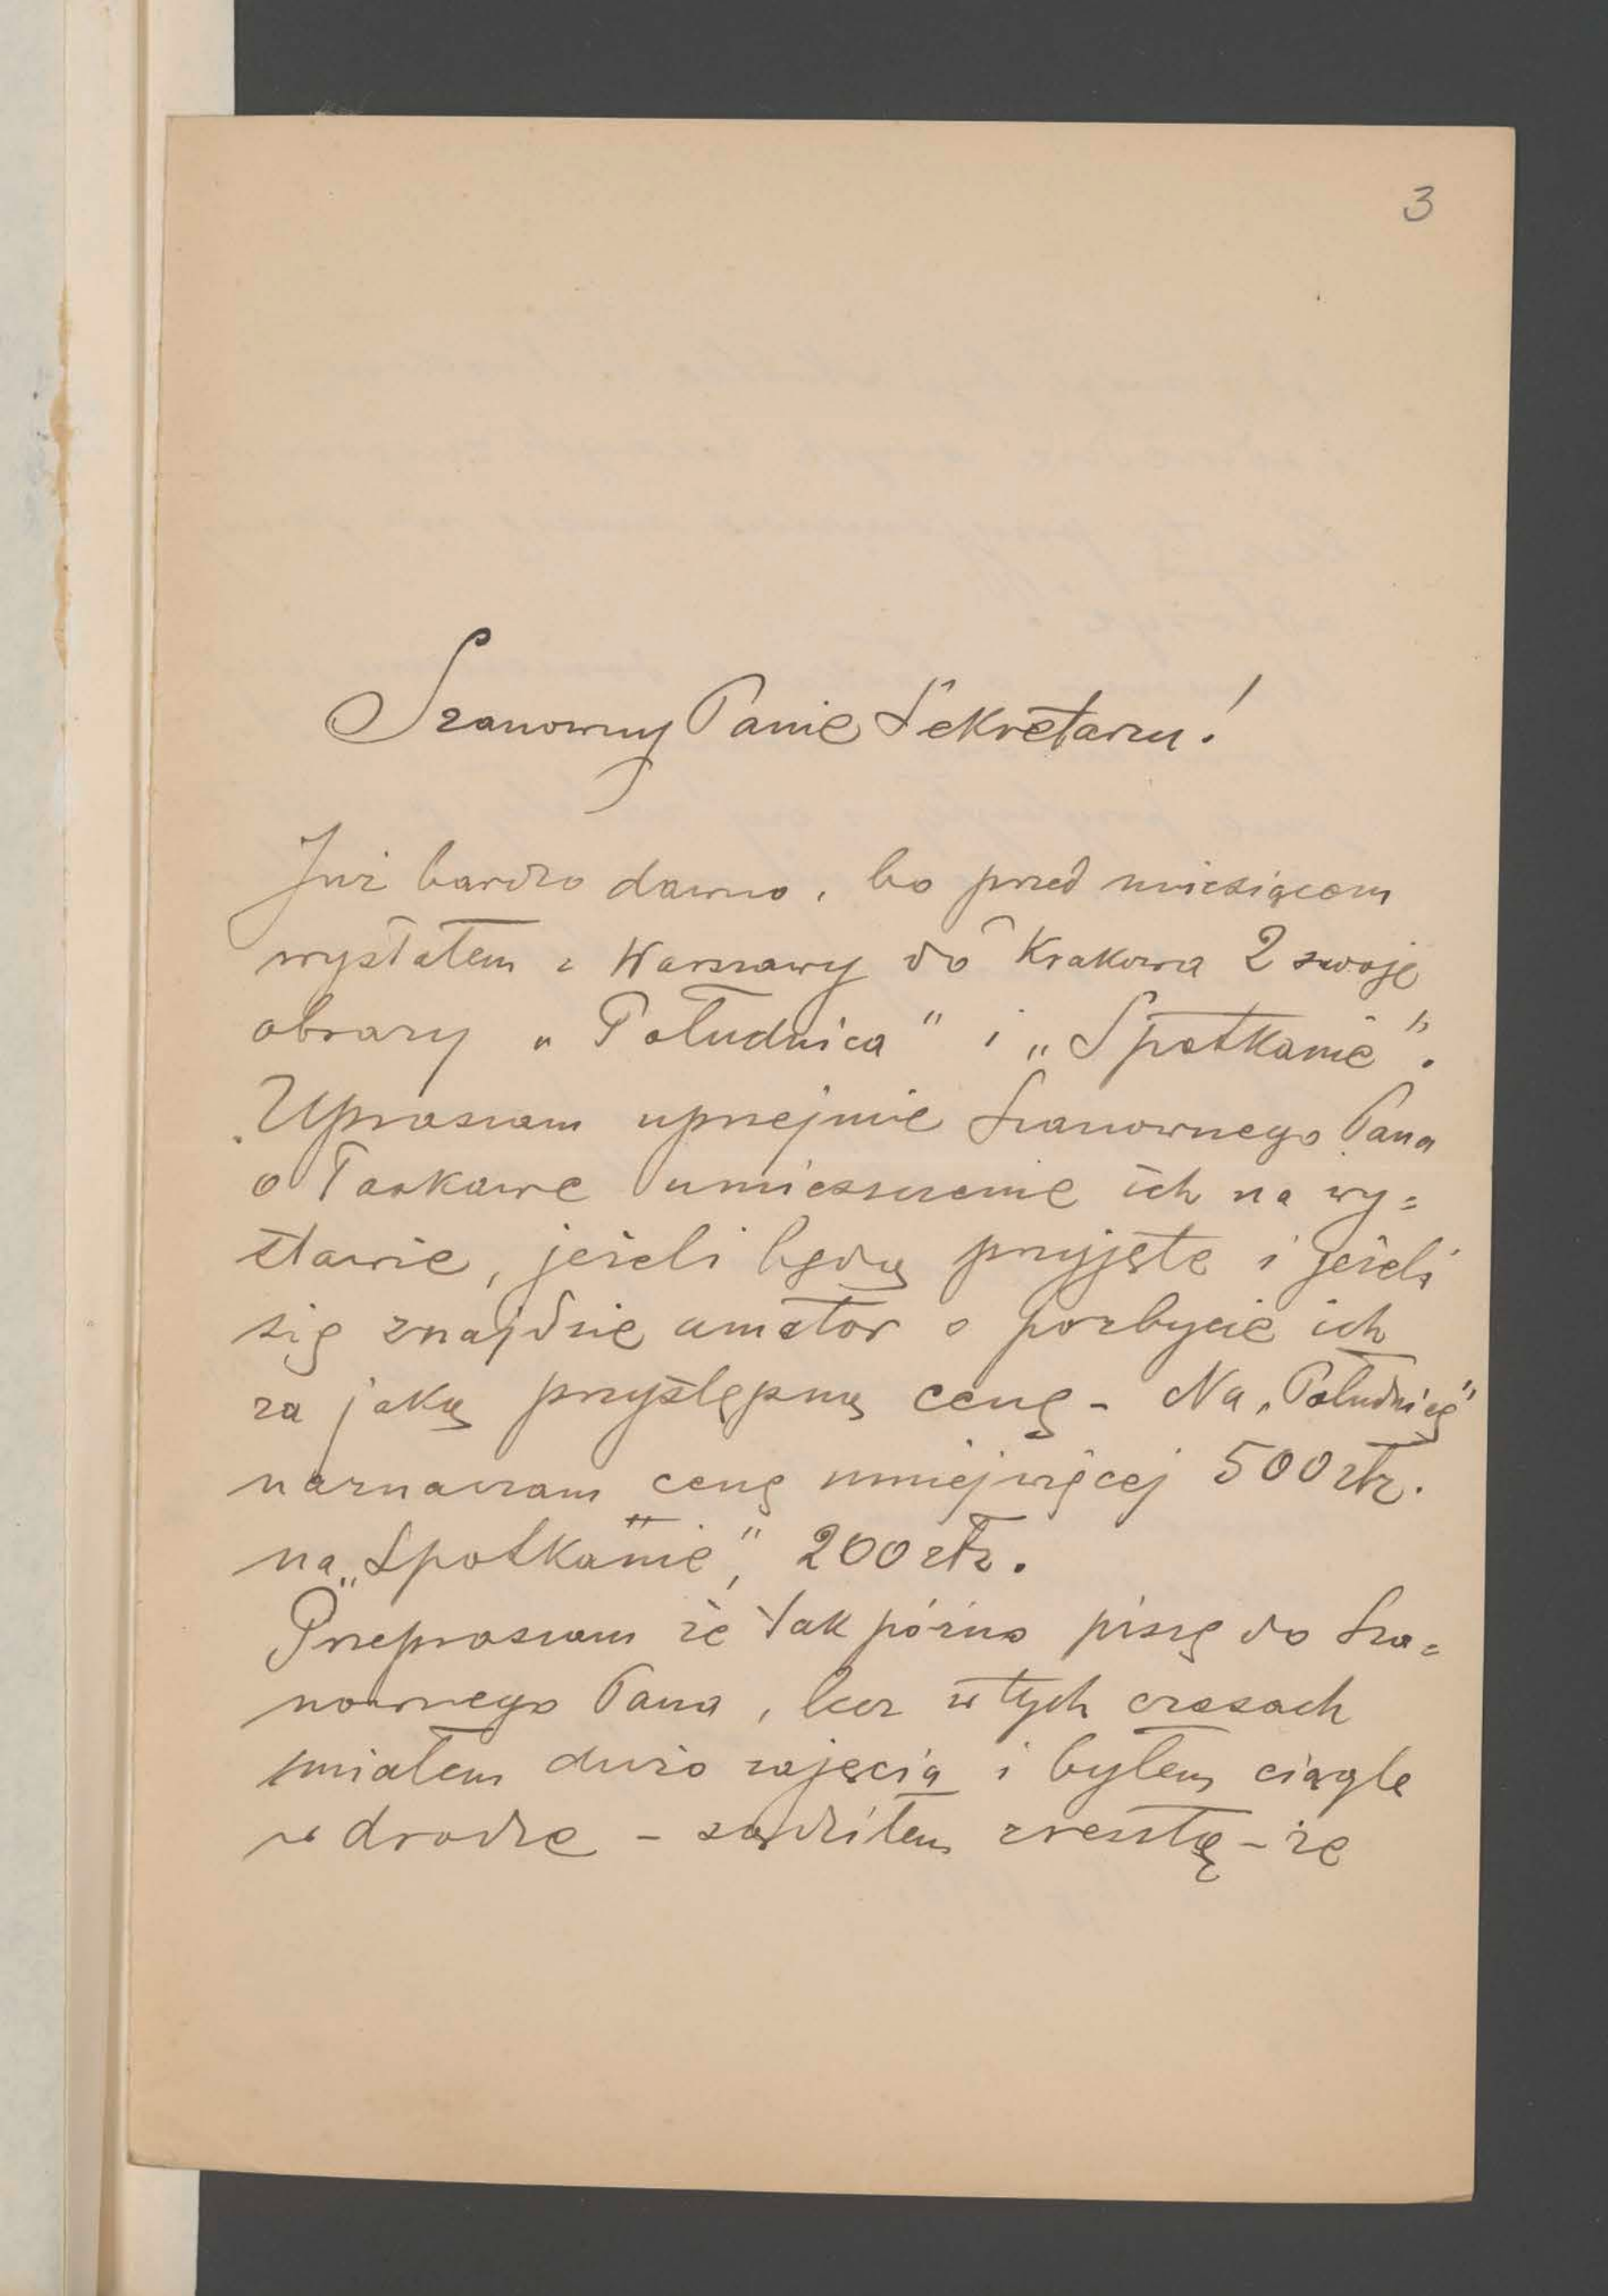 3
Szanowny Panie Sekretarzu!
Już bardzo dawno, bo przed miesiącem
wysłałem z Warszawy do Krakowa 2 swoje
obrazy „Południca" i „Spotkanie".
Upraszam uprzejmie Szanownego Pana
o łaskawe umieszczenie ich na wy=
stawie, jeżeli będą przyjęte i jeżeli
się znajdzie amator o pozbycie ich
za jaką przystępną cenę – Na „Południcę"
naznaczam cenę mniejwięcej 500 złr.
na „Spotkanie", 200 złr.
Przepraszam że tak późno piszę do Sza=
nownego Pana, lecz w tych czasach
miałem dużo zajęcia i byłem ciągle
w drodze – sądziłem zresztą – że